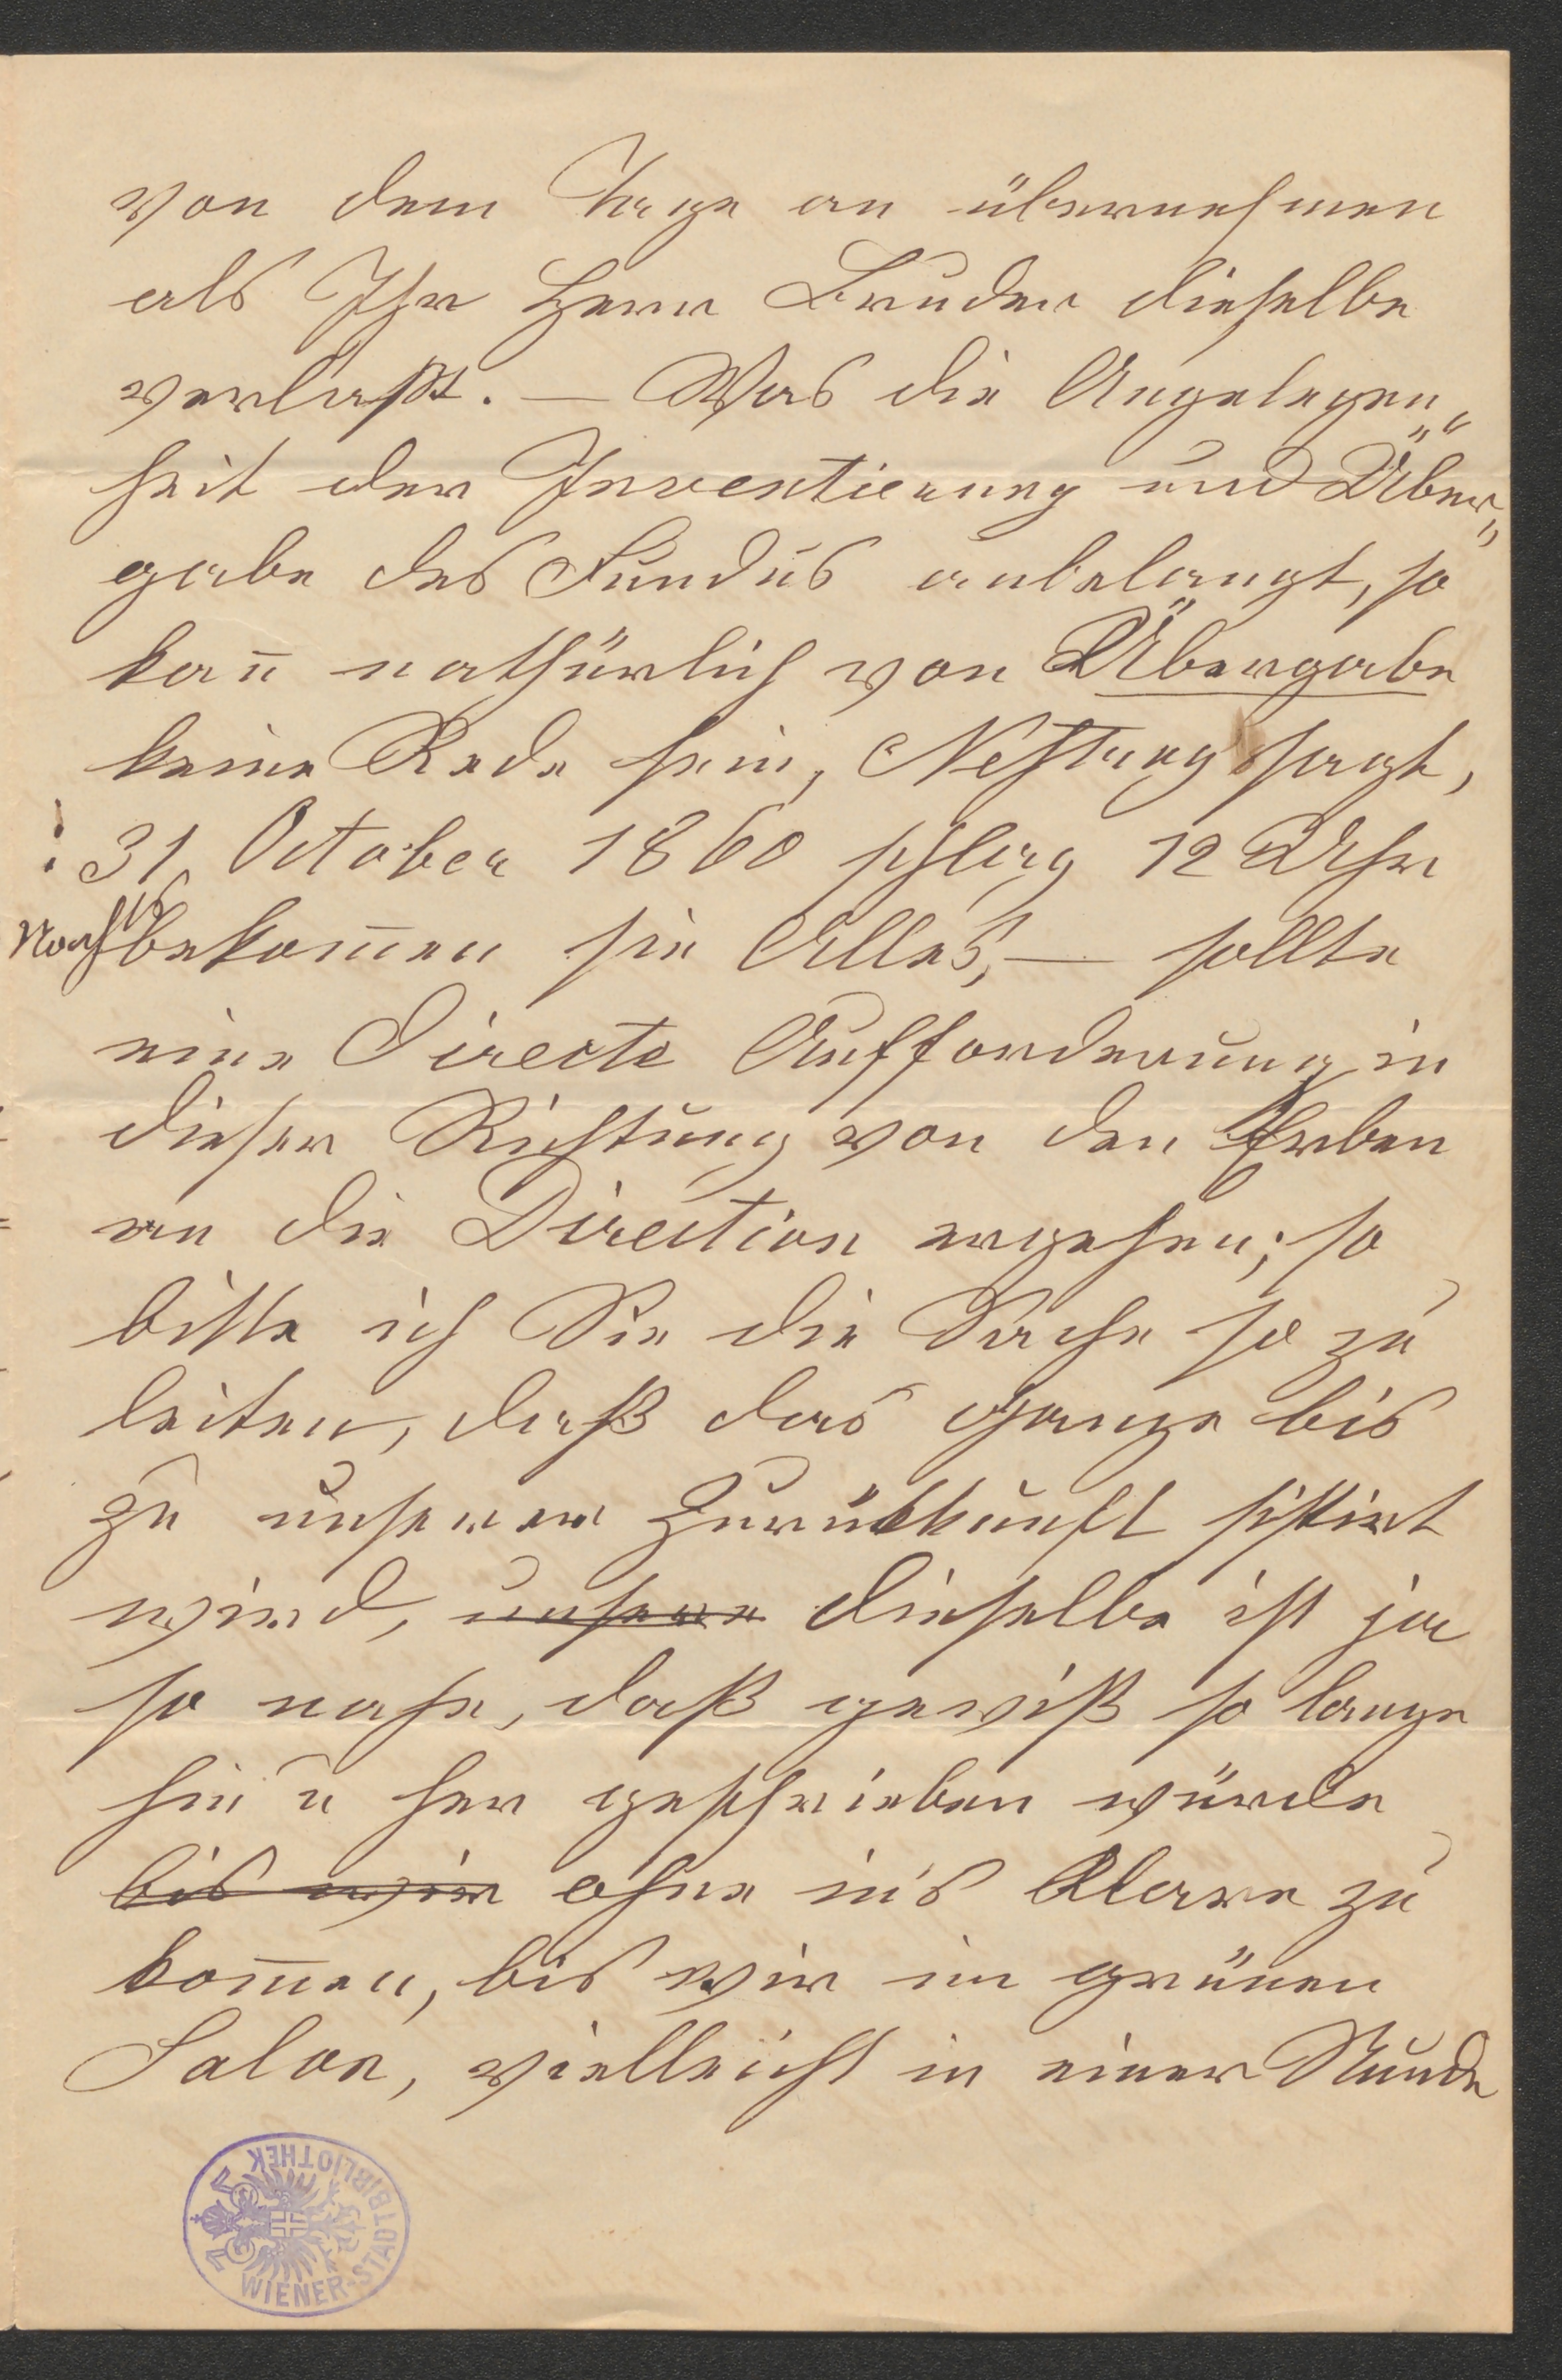 von dem Tage an übernehmen
als Ihr Herr Bruder dieselbe
verläßt. — Was die Angelegen„
heit der Inventierung und Über„
gabe des Fundus anbelangt, so
kan̅ nathürlich von Übergabe
keine Rede sein, Nestroy sagt,
31 October 1860 schlag 12 Uhr
Nachts bekom̅en sie Alles, — sollte
eine Directe Aufforderung in
dieser Richtung von den Erben
an die Direction ergehen; so
bitte ich Sie die Sache so zu
leiten, daß das Ganze bis
zu unserer Zurückkunft sistirt
wird, unsere dieselbe ist ja
so nahe, daß gewiß so lange
hin u her geschrieben würde
bis wir ohne in's Klare zu
kom̅en, bis wir im grünen
Salon, vielleicht in einer Stunde
WIENER-STADTBIBLIOTHEK